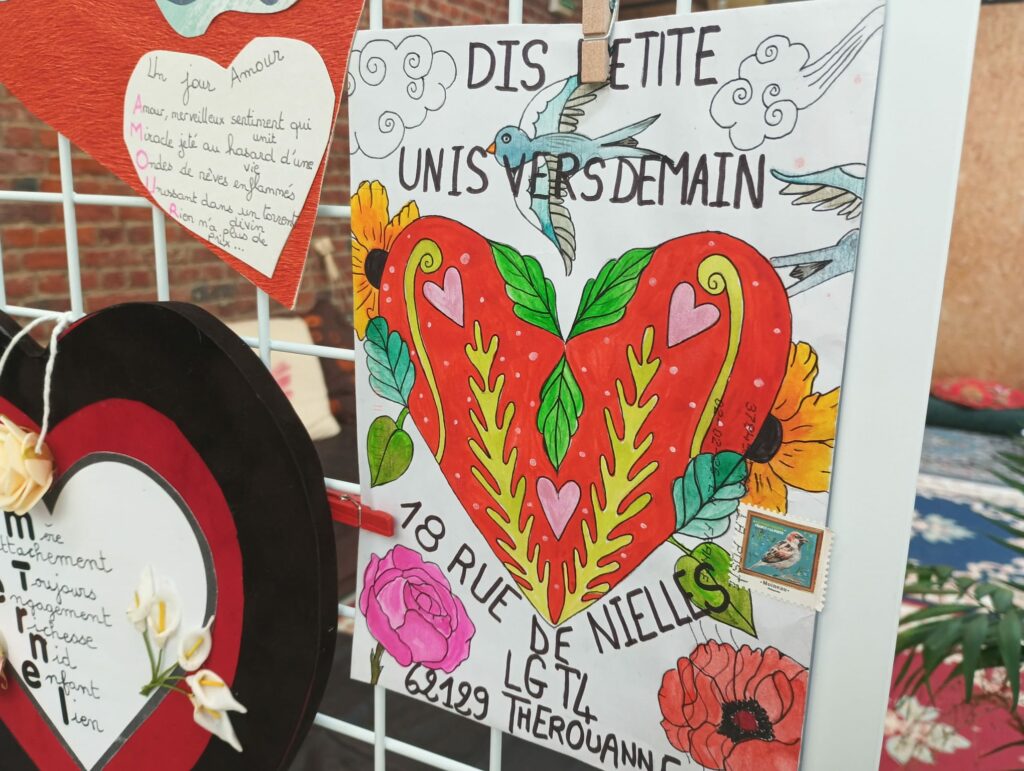 Un jour Amour
Amour, merveilleux sentiment qui
unit
Miracle jeté au hasard d'une
vie
Ondes de rêves enflammés
Unissant dans un torrent
divin
Rien n'a plus de
prix...
DIS PETITE
UNIS VERS DEMAIN
18 RUE DE NIELLES
LGT4
62129 THEROUANNE
mère
attachement
Toujours
engagement
richesse
nid
enfant
lien